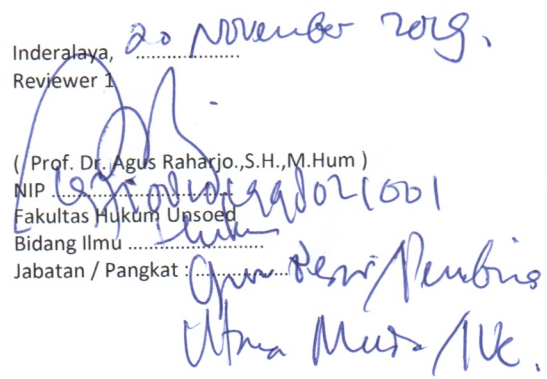 Inderalaya, 20 November 2019.
Reviewer 1
( Prof. Dr. Agus Raharjo.,S.H.,M.Hum )
NIP
Fakultas Hukum Unsoed
Bidang Ilmu Hukum
Jabatan / Pangkat : Guru Besar/Pembina
Utama Muda/IVc.